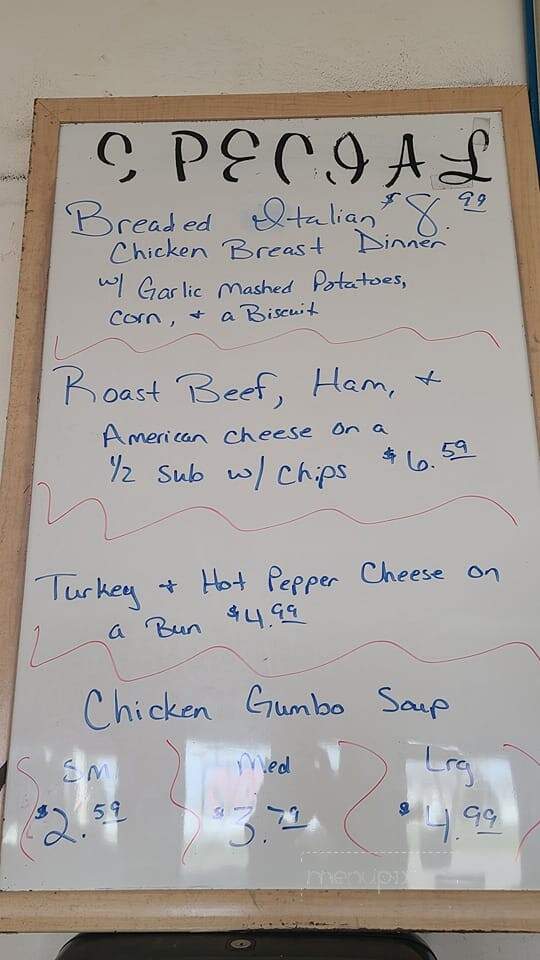 SPECIAL
Breaded Italian $8.99
Chicken Breast Dinner
w/ Garlic Mashed Potatoes,
Corn, + a Biscuit
Roast Beef, Ham, +
American cheese on a
1/2 Sub w/ Chips $6.59
Turkey + Hot Pepper Cheese on
a Bun $4.99
Chicken Gumbo Soup
Sm Med Lrg
$2.59 $3.79 $4.99
menupix